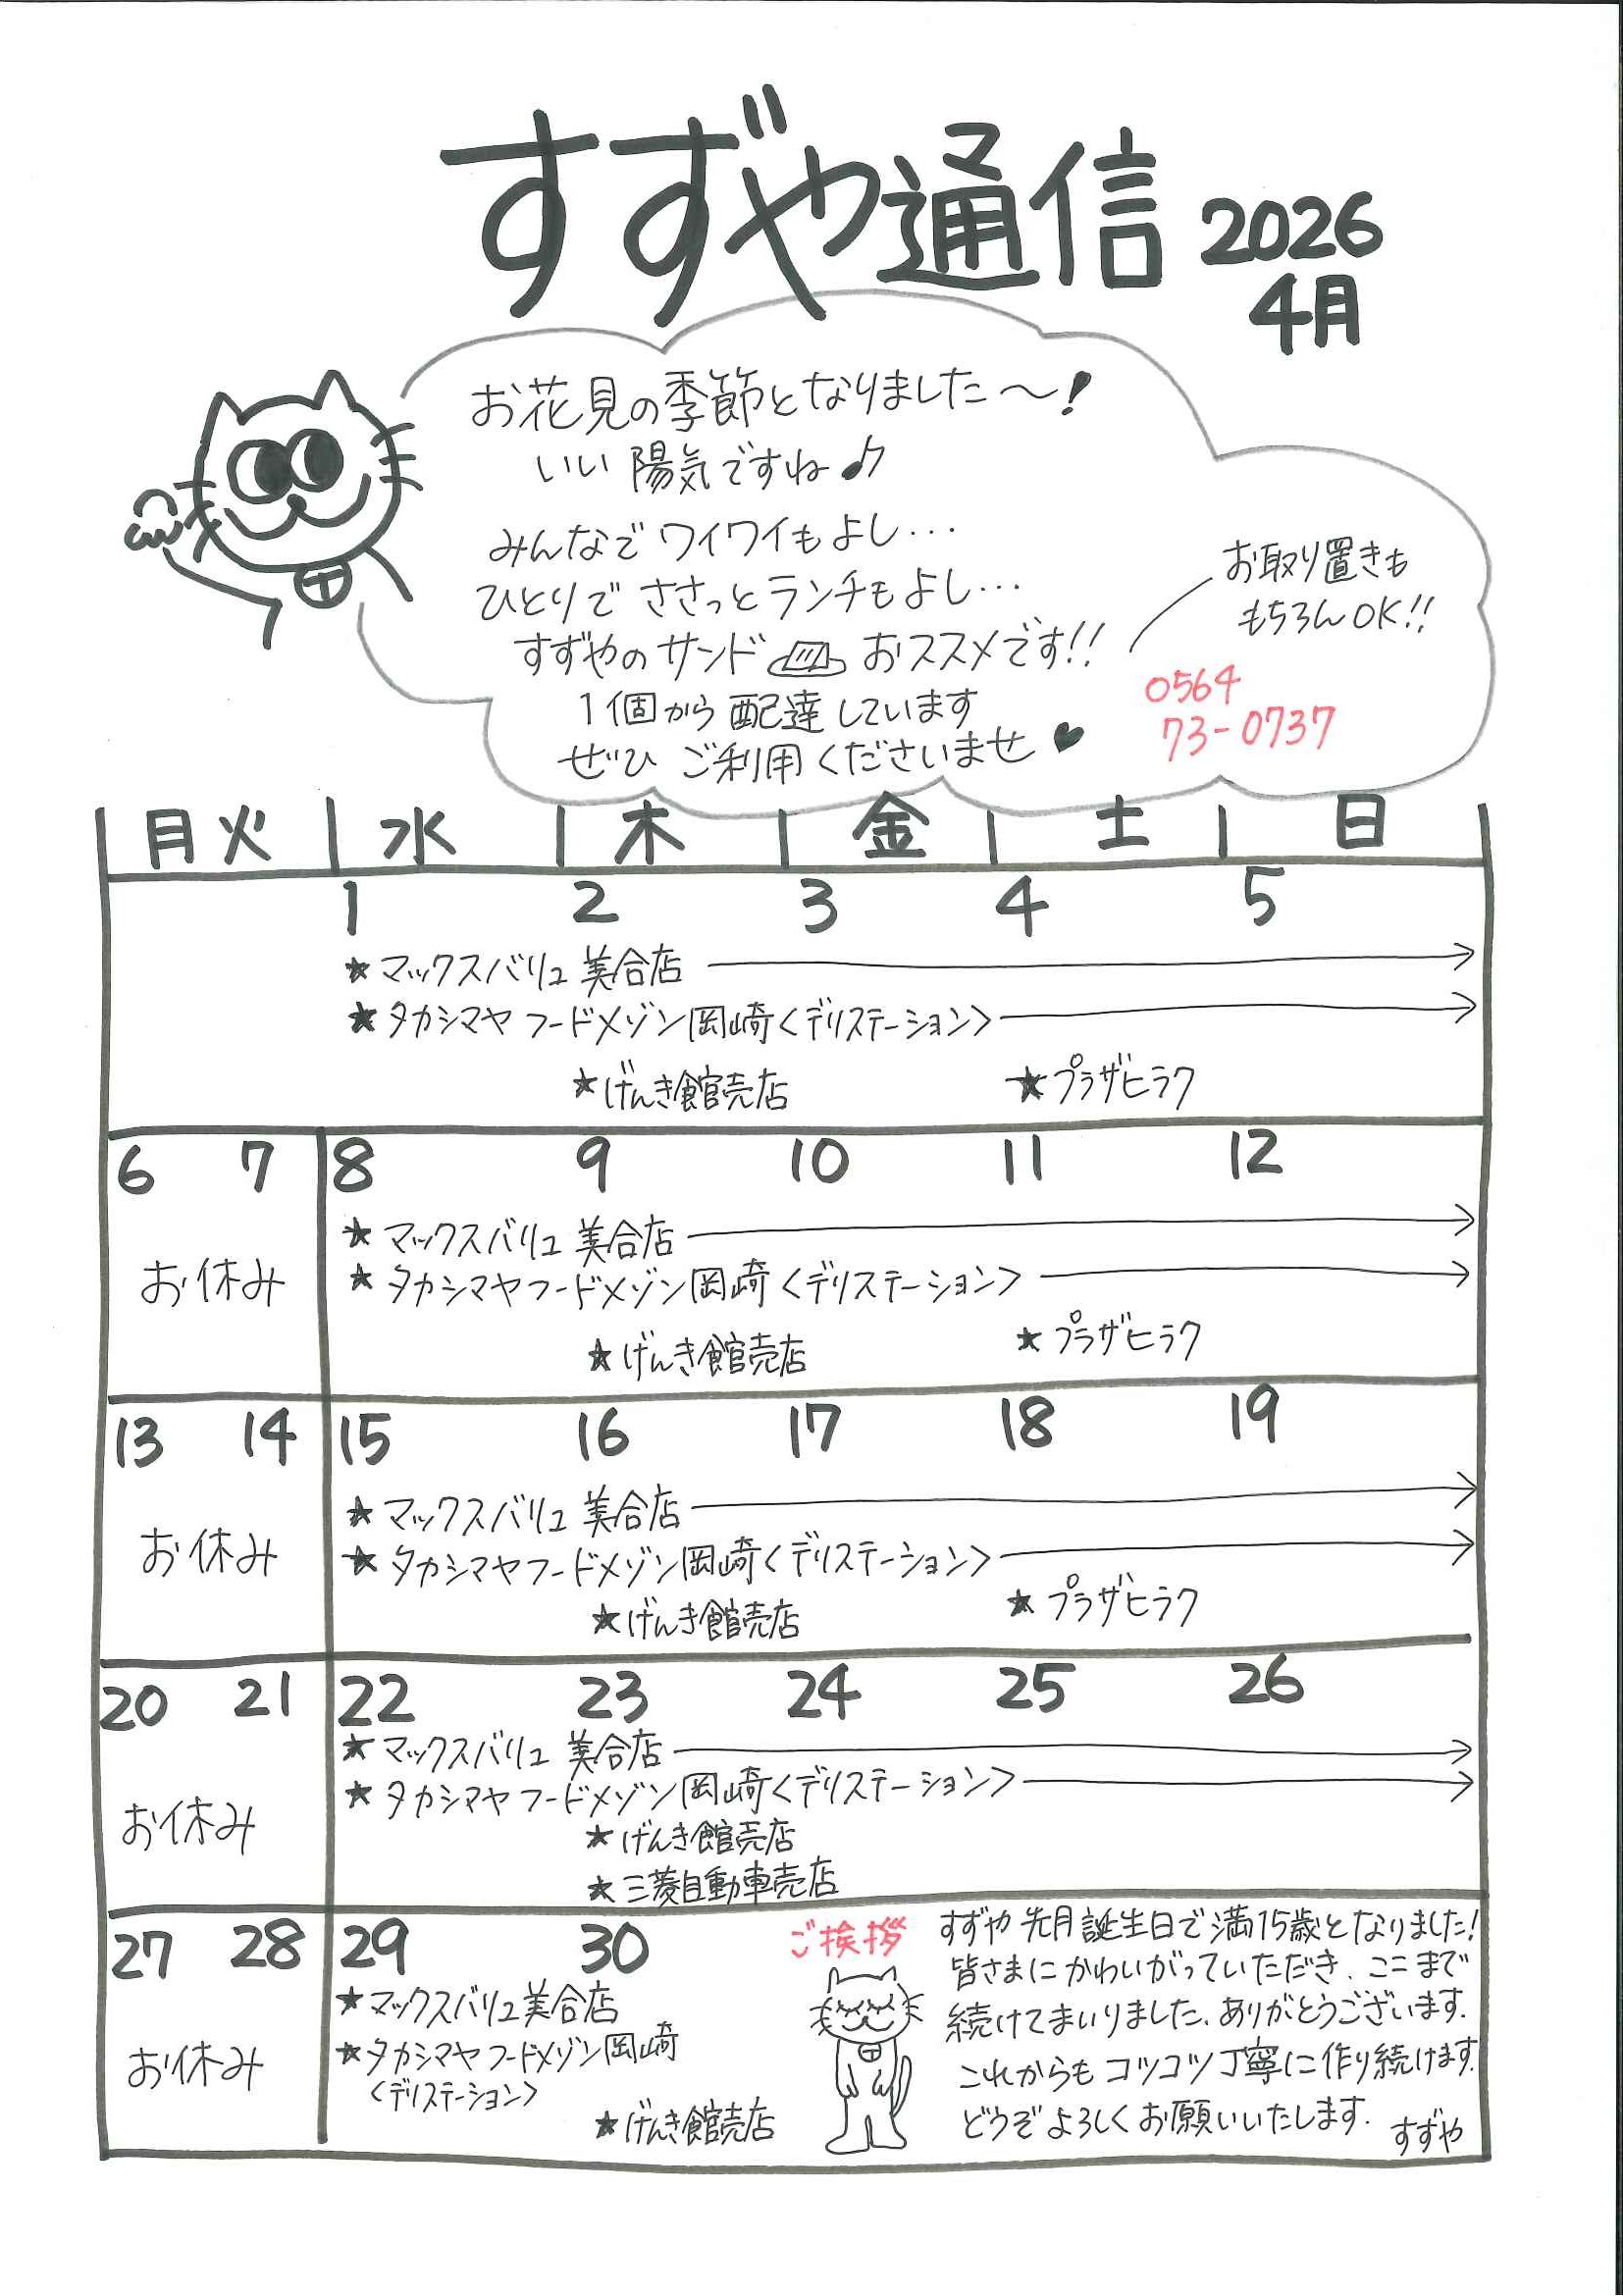 すずや通信 2026
4月
お花見の季節となりました〜!
いい陽気ですね♪
みんなでワイワイもよし…
ひとりでささっとランチもよし…
すずやのサンド おススメです!!
1個から配達しています
ぜひ ご利用くださいませ♥
お取り置きも
もちろんOK!!
0564
73-0737
月 火 水 木 金 土 日
1 2 3 4 5
★マックスバリュ 美合店
★タカシマヤ フードメゾン岡崎<デリステーション>
★げんき館売店 ★プラザヒラク
6 7 8 9 10 11 12
お休み
★マックスバリュ 美合店
★タカシマヤフードメゾン岡崎<デリステーション>
★げんき館売店 ★プラザヒラク
13 14 15 16 17 18 19
お休み
★マックスバリュ 美合店
★タカシマヤフードメゾン岡崎<デリステーション>
★げんき館売店 ★プラザヒラク
20 21 22 23 24 25 26
お休み
★マックスバリュ 美合店
★タカシマヤフードメゾン岡崎<デリステーション>
★げんき館売店
★三菱自動車売店
27 28 29 30
お休み
★マックスバリュ美合店
★タカシマヤフードメゾン岡崎
<デリステーション>
★げんき館売店
ご挨拶
すずや先月誕生日で満15歳となりました!
皆さまにかわいがっていただき、ここまで
続けてまいりました、ありがとうございます.
これからもコツコツ丁寧に作り続けます.
どうぞよろしくお願いいたします.
すずや